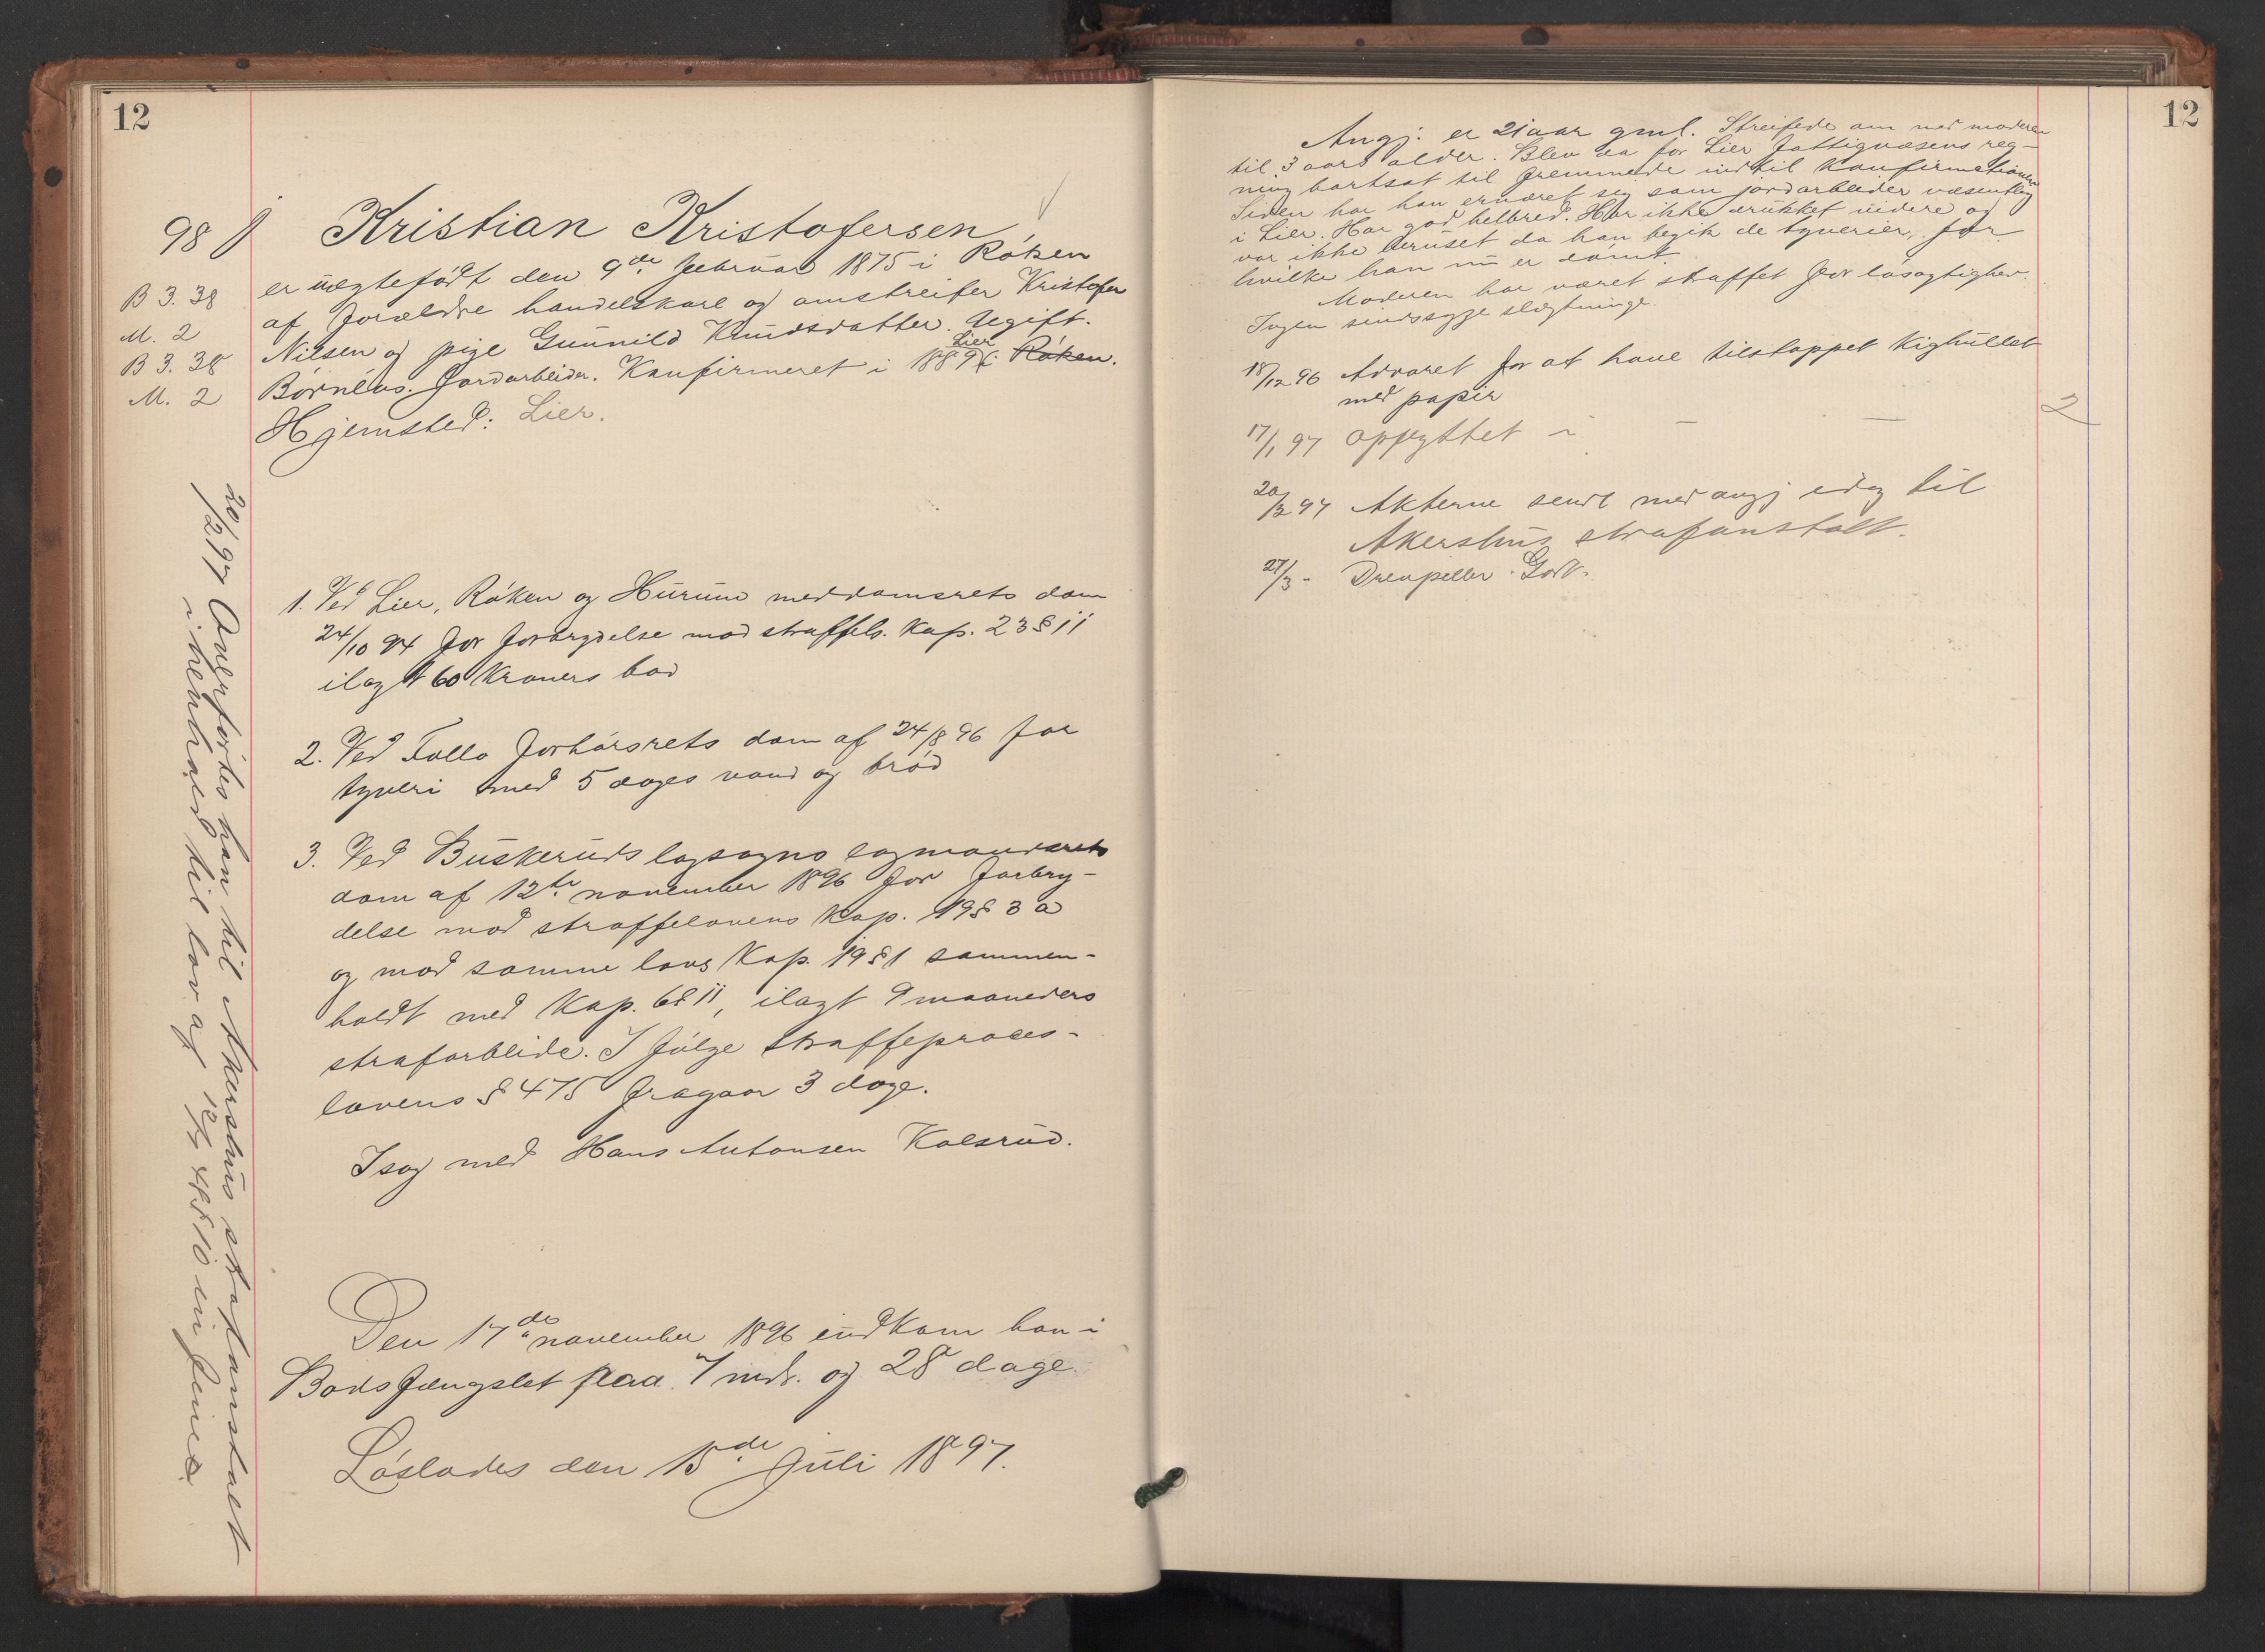 12
98
Kristian Kristofersen,
er uægtefødt den 9de februar 1875 i Røken
B 3. 38
af forældre handelskarl og omstreifer Kristofer
M. 2
Nilsen og pige Gunnild Knudsdatter. Ugift.
B 3. 38
Børnløs. Jordarbeider. Konfirmeret i 1889 i Røken.
Lier
M. 2
Hjemsted: Lier.
20/3 97 Overførtes han til Akershus strafanstalt
i henhold til lov af 12/7 48 § 10 in fine.
1. Ved Lier, Røken og Hurum meddomsrets dom
24/10 94 for forbrydelse mod straffels. Kap. 23 § 11
ilagt 60 kroners bod
2. Ved Follo forhørsrets dom af 24/8 96 for
tyveri med 5 dages vand og brød
3. Ved Buskeruds lagsogns lagmandsrets
dom af 12te november 1896 for forbry-
delse mod straffelovens Kap. 19 § 3 a
og mod samme lovs Kap. 19 § 1 sammen-
holdt med Kap. 6 § 11, ilagt 9 maaneders
strafarbeide. I følge straffeproces-
lovens § 475 fragaar 3 dage.
I sag med Hans Antonsen Kolsrud.
Den 17de november 1896 indkom han i
Bodsfængslet paa 7 mdr. og 28 dage.
Løslades den 15de juli 1897.
12
Angj. er 21 aar gml. Streifede om med moderen
til 3 aars alder. Blev da for Lier fattigvæsens reg-
ning bortsat til fremmede indtil konfirmationen
Siden har han ernæret sig som jordarbeider væsentlig
i Lier. Har god helbred. Har ikke drukket videre og
var ikke beruset da han begik de tyverier, for
hvilke han nu er dømt.
Moderen har været straffet for løsagtighed.
Ingen sindssyge slægtninge.
18/12 96 Advaret for at have tilstoppet kighullet
med papir
2
17/1 97 Opflyttet i — —
20/3 97 Akterne sendt med angj idag til
Akershus strafanstalt.
27/3 -